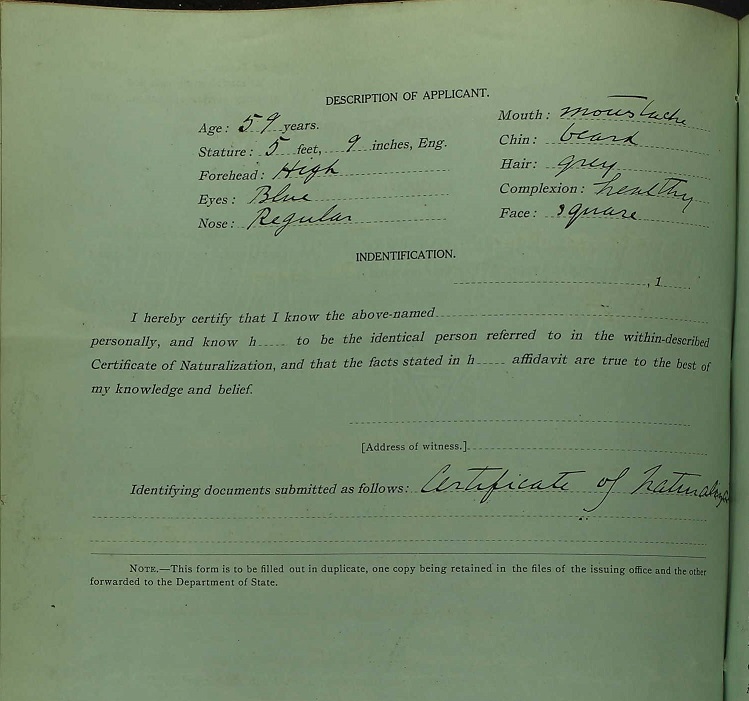 DESCRIPTION OF APPLICANT.
Age: 59 years.
Stature: 5 feet, 9 inches, Eng.
Forehead: High
Eyes: Blue
Nose: Regular
Mouth: moustache
Chin: beard
Hair: grey
Complexion: healthy
Face: square
INDENTIFICATION.
, 1
I hereby certify that I know the above-named
personally, and know h to be the identical person referred to in the within-described
Certificate of Naturalization, and that the facts stated in h affidavit are true to the best of
my knowledge and belief.
[Address of witness.]
Identifying documents submitted as follows: Certificate of
NOTE.—This form is to be filled out in duplicate, one copy being retained in the files of the issuing office and the other
forwarded to the Department of State.